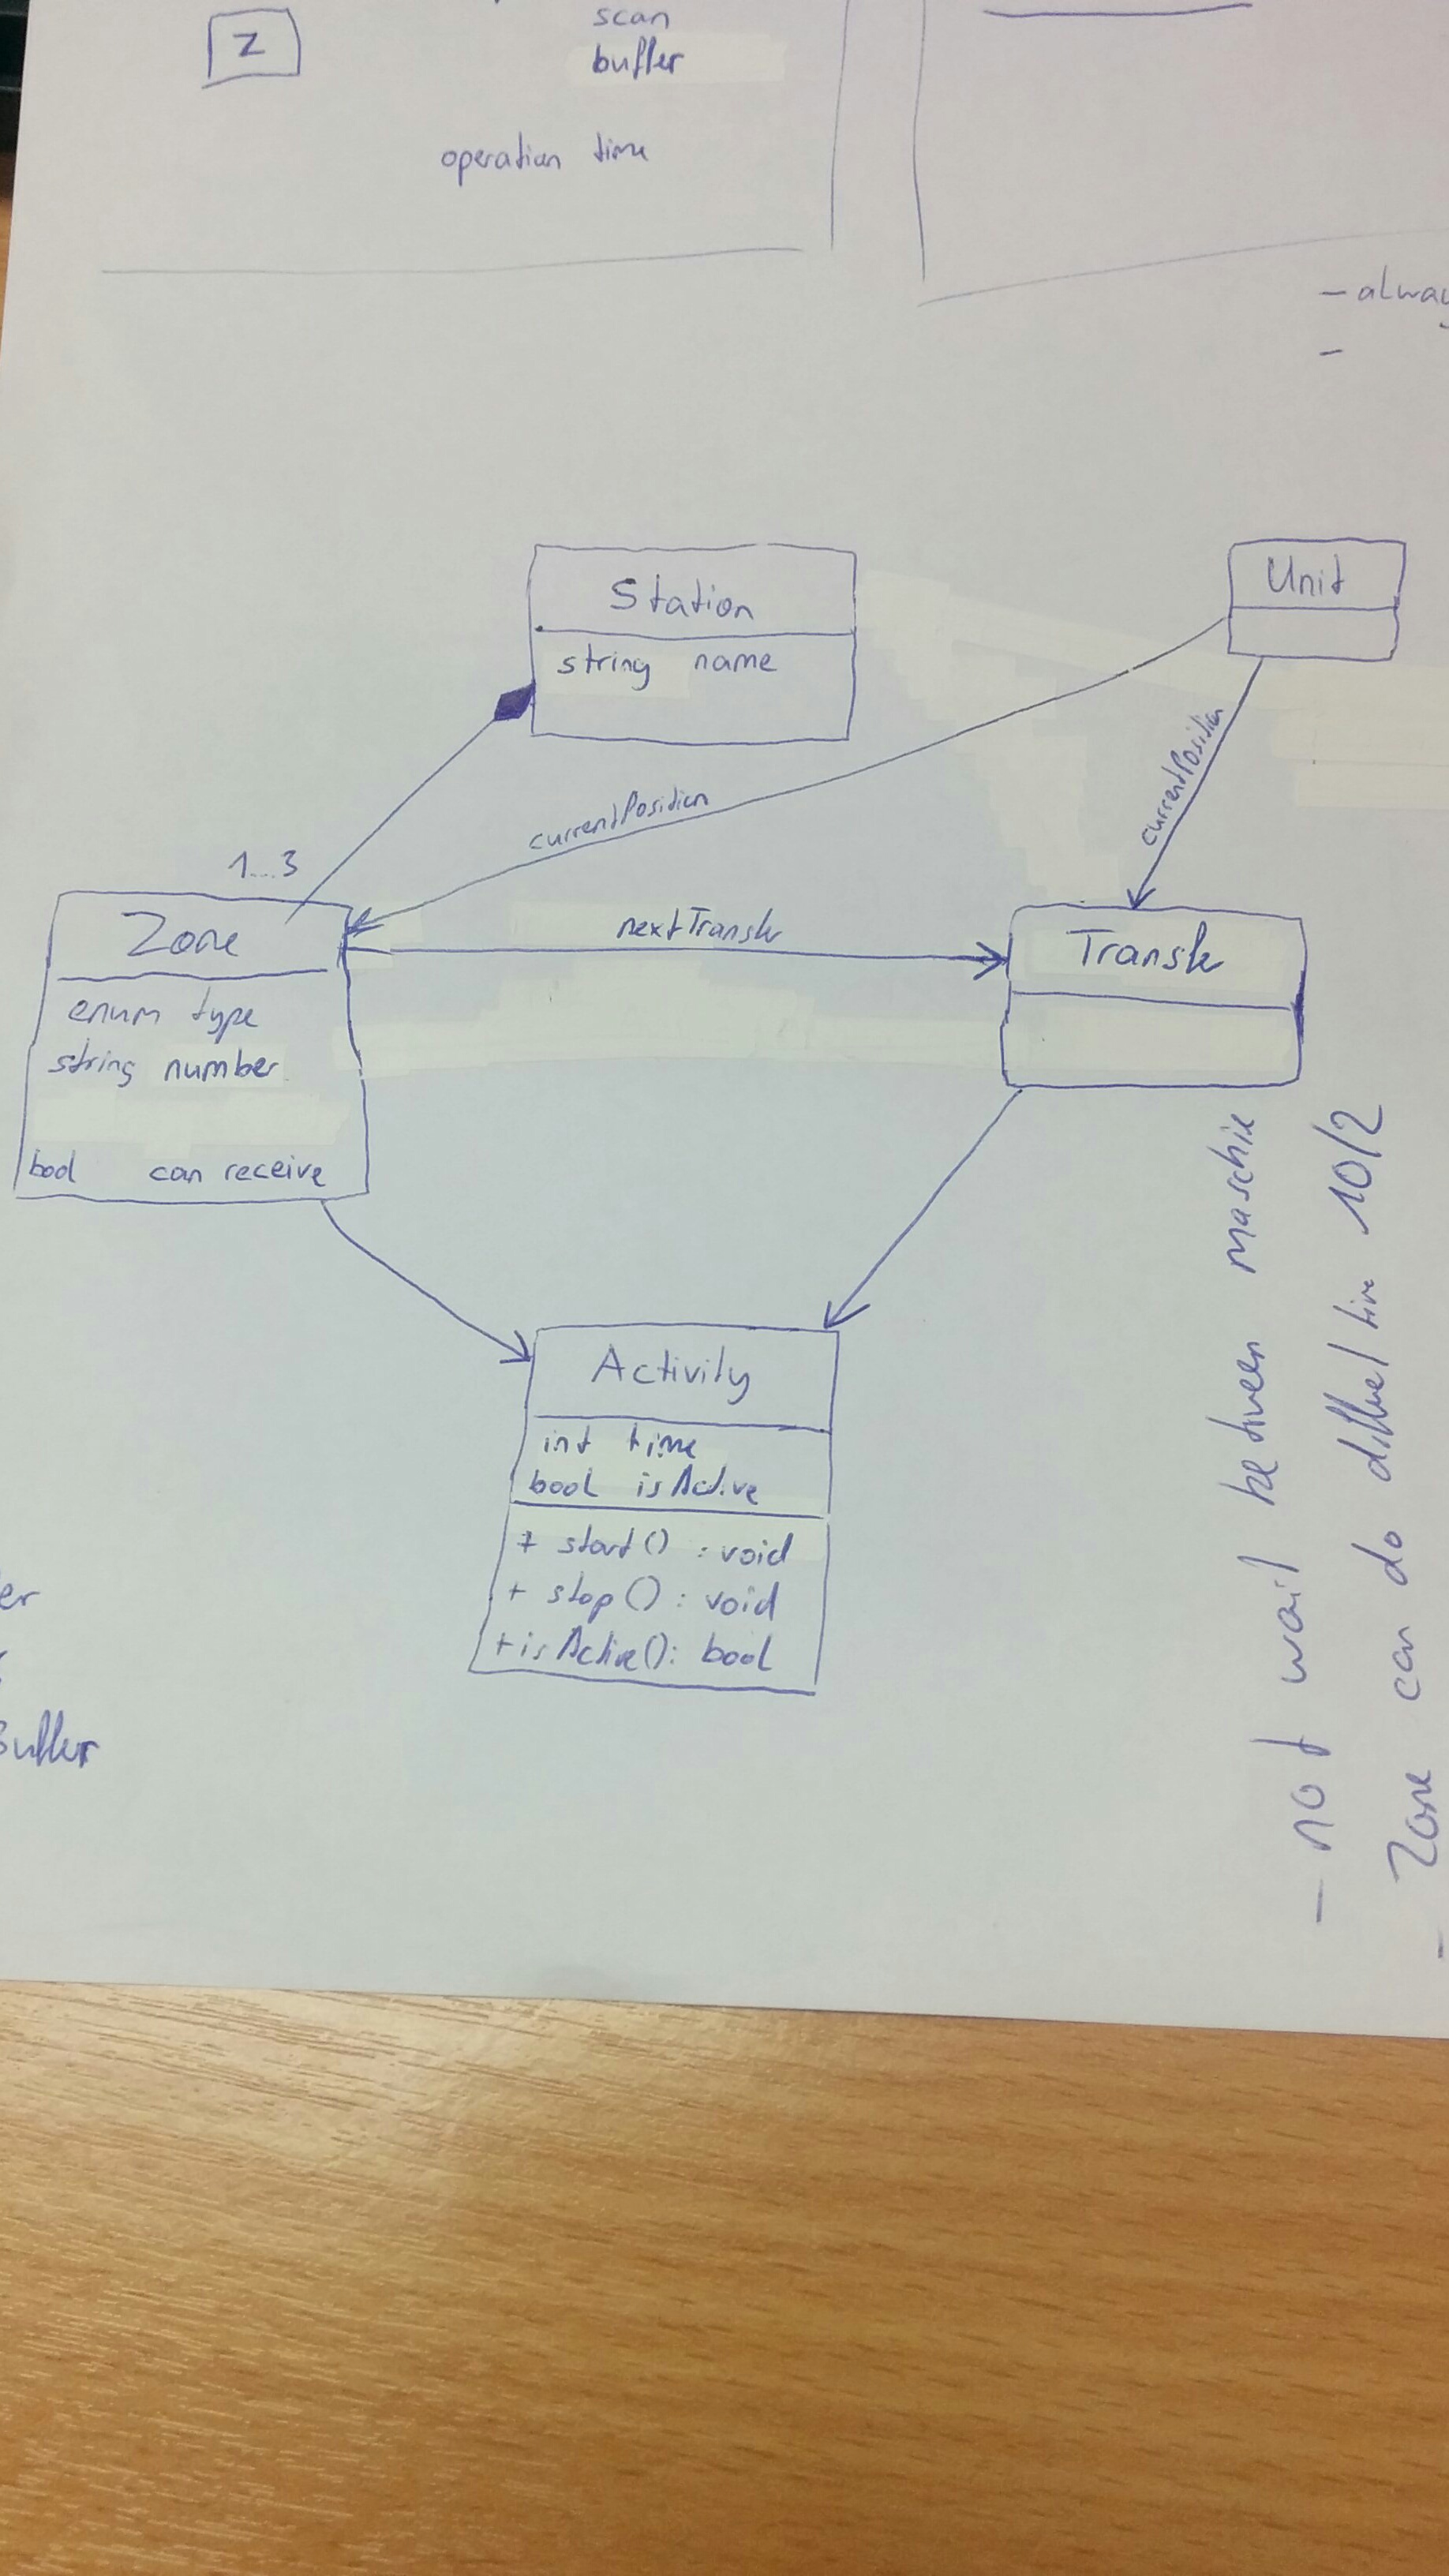 scan
Z
buffer
operation time
- alway
-
Station
string name
Unit
currentPosition
currentPosition
1...3
Zone
enum type
string number
bool can receive
nextTransfer
Transfer
Activity
int time
bool isActive
+ start() : void
+ stop() : void
+isActive(): bool
er
Buffer
- not wait between maschine
Zone can do different time 10/2
-